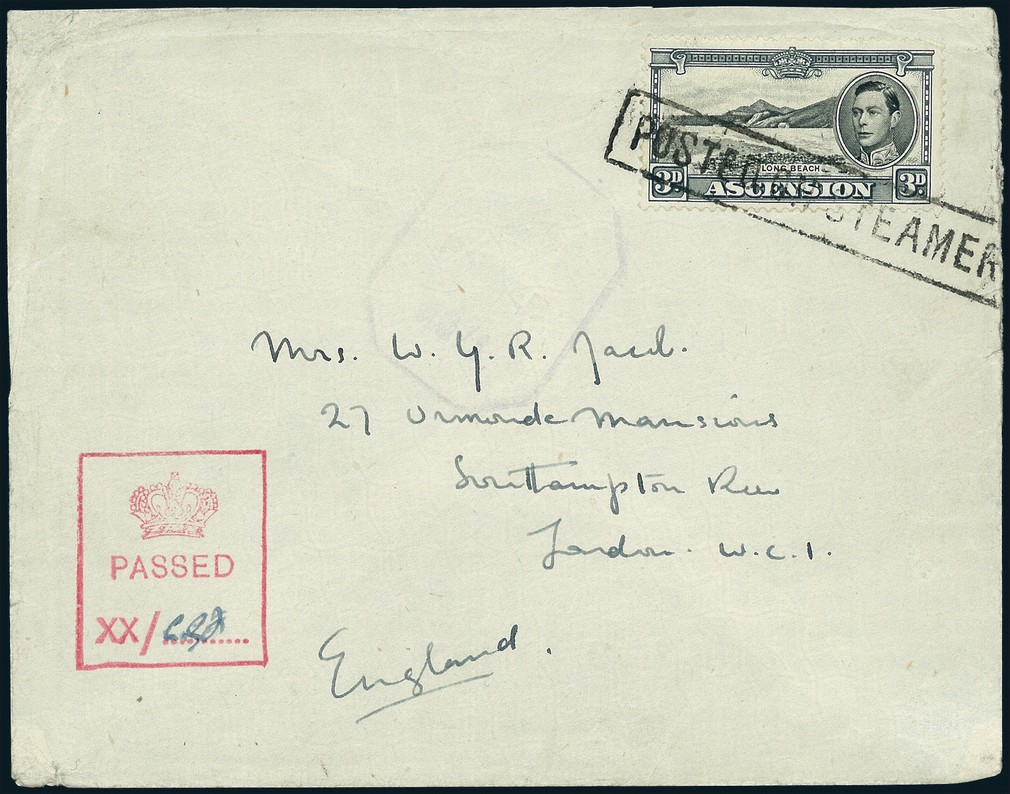 POSTED ON STEAMER
LONG BEACH
3D ASCENSION 3D
Mrs. W. G. R. Jacob.
27 Ormonde Mansions
Southampton Row
London. W.C.1.
England.
PASSED
XX/